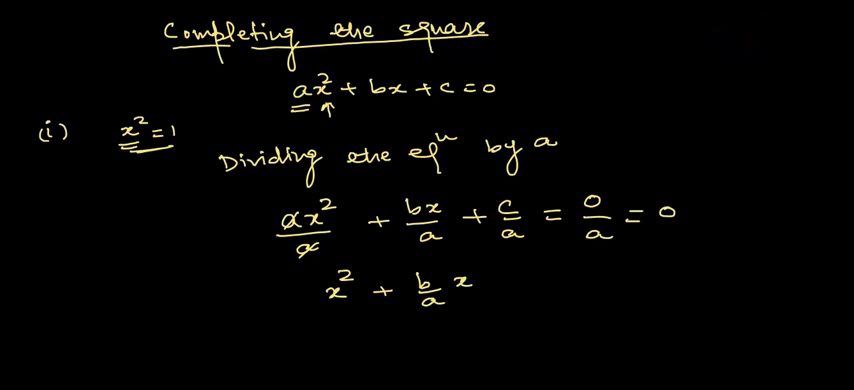 Completing the square
ax² + bx + c = 0
(i) x² = 1
Dividing the eqⁿ by a
ax²/a + bx/a + c/a = 0/a = 0
x² + b/a x